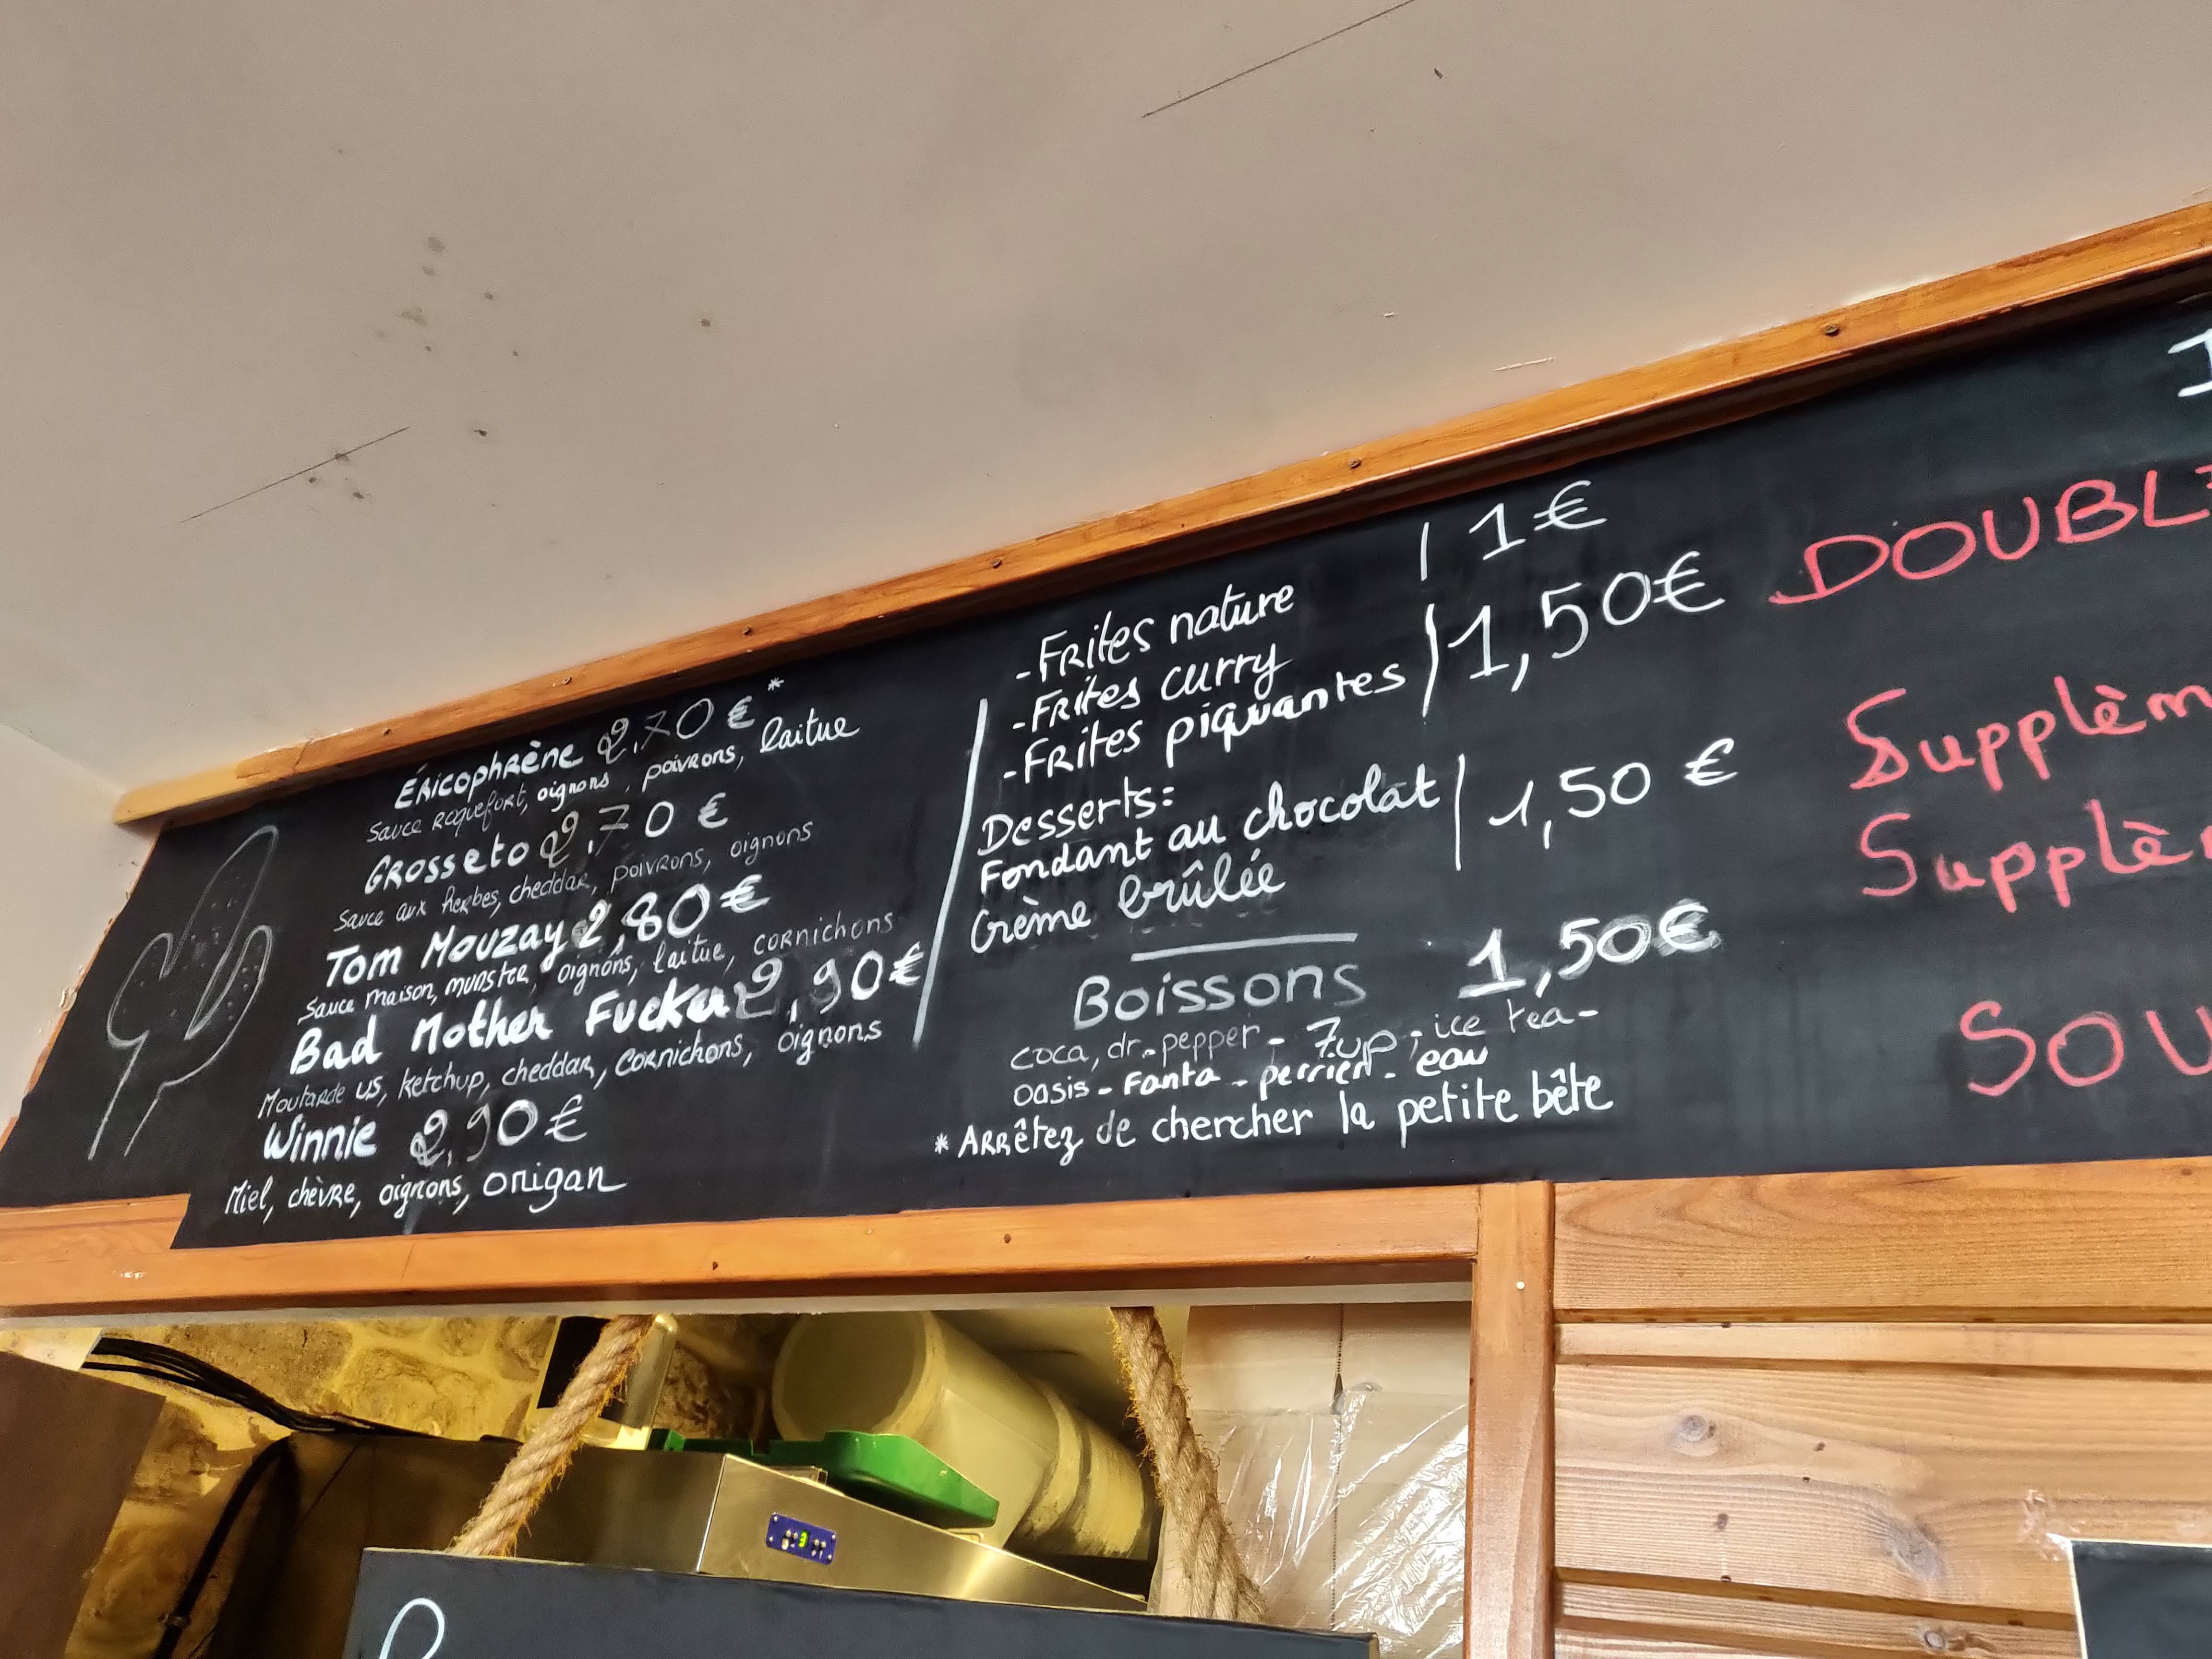 Éricophrène 2,70 € *
Sauce roquefort, oignons, poivrons, laitue
Grosseto 2,70 €
Sauce aux herbes, cheddar, poivrons, oignons
Tom Mouzay 2,80 €
Sauce maison, munster, oignons, laitue, cornichons
Bad Mother Fucker 2,90 €
Moutarde US, ketchup, cheddar, cornichons, oignons
Winnie 2,90 €
Miel, chèvre, oignons, origan
- Frites nature | 1 €
- Frites curry
- Frites piquantes | 1,50 €
Desserts:
Fondant au chocolat | 1,50 €
Crème brûlée
Boissons 1,50 €
coca, dr. pepper - 7up - ice tea -
oasis - Fanta - perrier - eau
* Arrêtez de chercher la petite bête
DOUBLE
Supplèm
Supplè
SOU